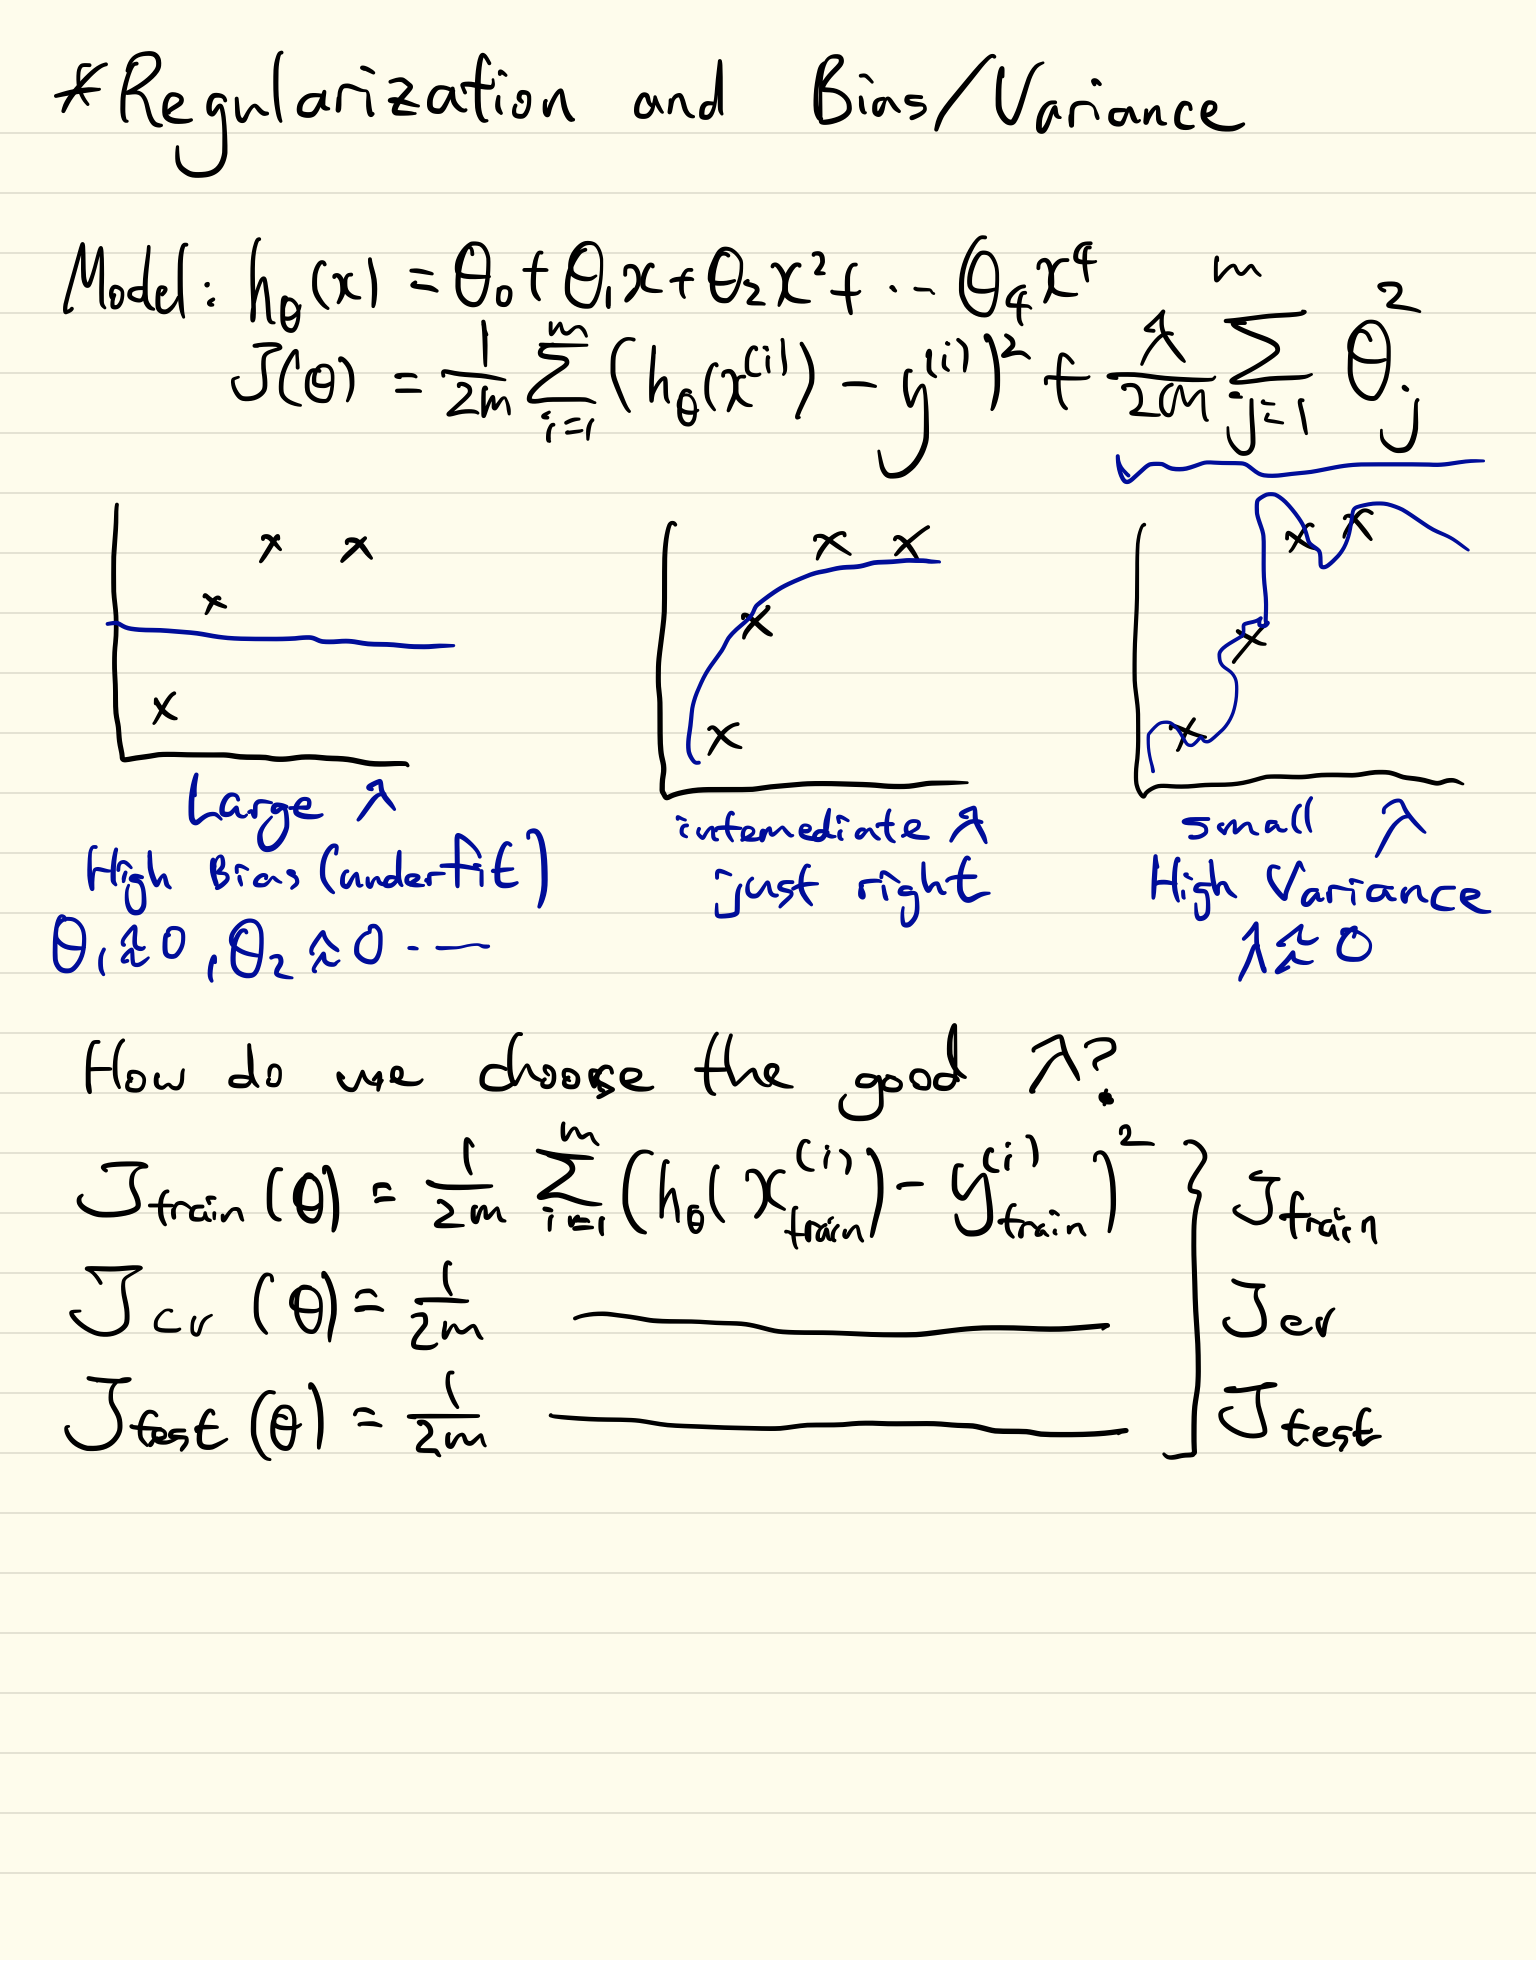 *Regularization and Bias/Variance
Model: hθ(x) = θ₀ + θ₁x + θ₂x² + ... θ₄x⁴
J(θ) = 1/2m Σ_{i=1}^{m} (hθ(x⁽ⁱ⁾) - y⁽ⁱ⁾)² + λ/2m Σ_{j=1}^{m} θⱼ²
Large λ
High Bias (underfit)
θ₁ ≈ 0, θ₂ ≈ 0 ...
intermediate λ
just right
small λ
High Variance
λ ≈ 0
How do we choose the good λ?
J_train (θ) = 1/2m Σ_{i=1}^{m} (hθ(x_train⁽ⁱ⁾) - y_train⁽ⁱ⁾)² } J_train
J_cv (θ) = 1/2m ———— J_cv
J_test (θ) = 1/2m ———— J_test